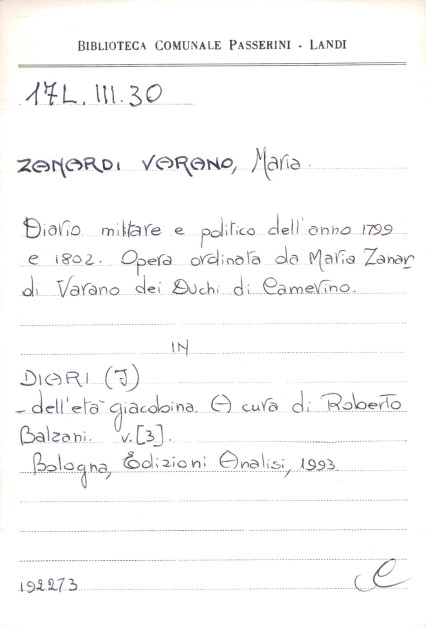 BIBLIOTECA COMUNALE PASSERINI - LANDI
17L. III. 30
ZANARDI VARANO, Maria.
Diario militare e politico dell'anno 1799
e 1802. Opera ordinata da Maria Zanar
di Varano dei Duchi di Camerino.
IN
DIARI (I)
- dell'età giacobina. A cura di Roberto
Balzani. v. [3].
Bologna, Edizioni Analisi, 1993.
192273